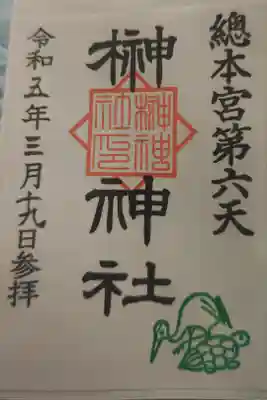 總本宮第六天
榊神社
榊神
社印
令和五年三月十九日参拝